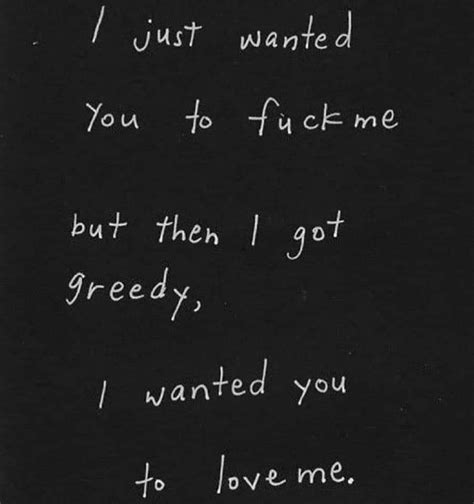 I just wanted
You to fuck me
but then I got
greedy,
I wanted you
to love me.